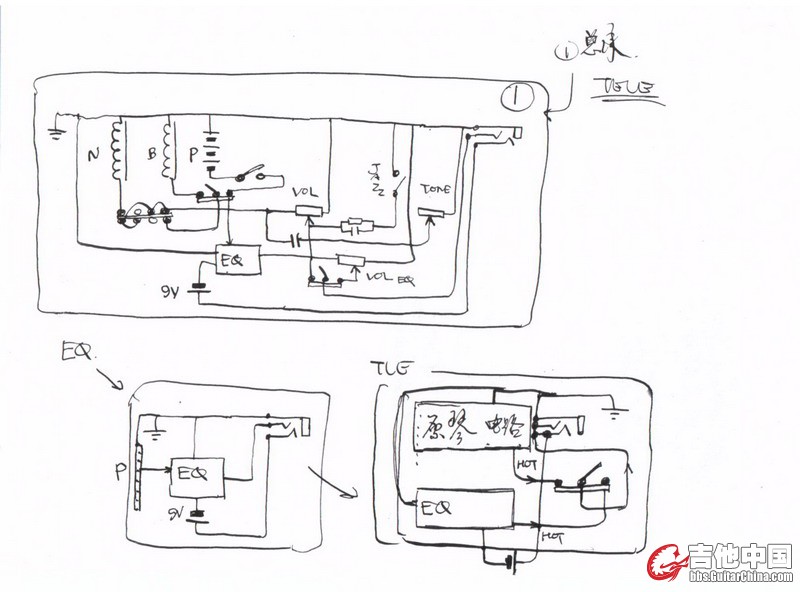 ① 总录
TELE
①
N
B
P
VOL
JAZZ
TONE
EQ
VOL EQ
9V
EQ.
TLE
P
EQ
9V
原琴 电路
HOT
EQ
HOT
吉他中国
bbs.GuitarChina.com